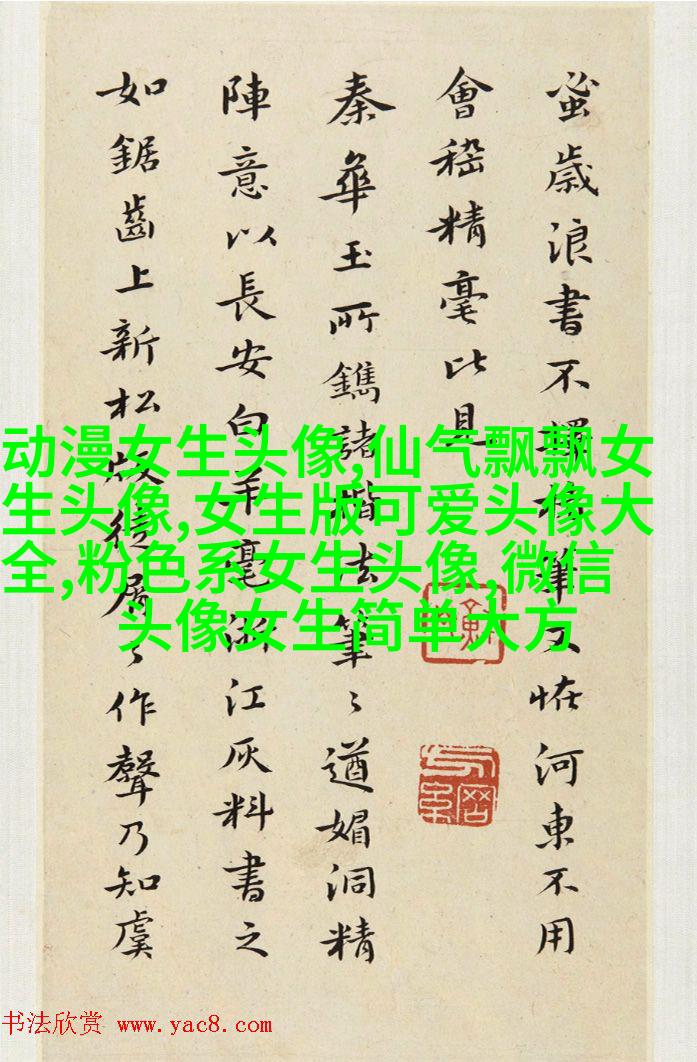 蚤歲浪書不擇
河東不用
會嵇精毫比見
秦華玉所鐫諸楷法筆〻遒媚洞精
陣意以長安白羊毫浙江灰料書之
如鋸齒上新松
屑〻作聲乃知虞
动漫女生头像,仙气飘飘女
生头像,女生版可爱头像大
全,粉色系女生头像,微信
头像女生简单大方
书法欣赏 www.yac8.com